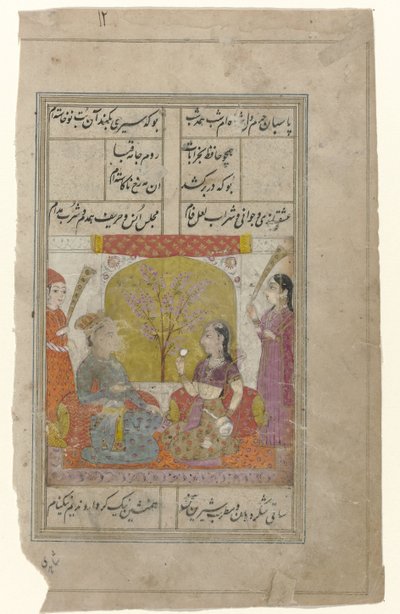 ۱۲
پاسبان حرم دل شده ام شب همه شب
بو که سیری بکند آن بت نوخاسته ام
همچو حافظ بخرابات
روم جامه قبا
بو که در بر کشد
آن مه رخ ناکاسته ام
عشقبازی و جوانی و شراب لعل فام
مجلس انس و حریف همدم و شرب مدام
ساقی شکر دهان و مطرب شیرین سخن
همنشین نیک کردار و ندیم نیکنام